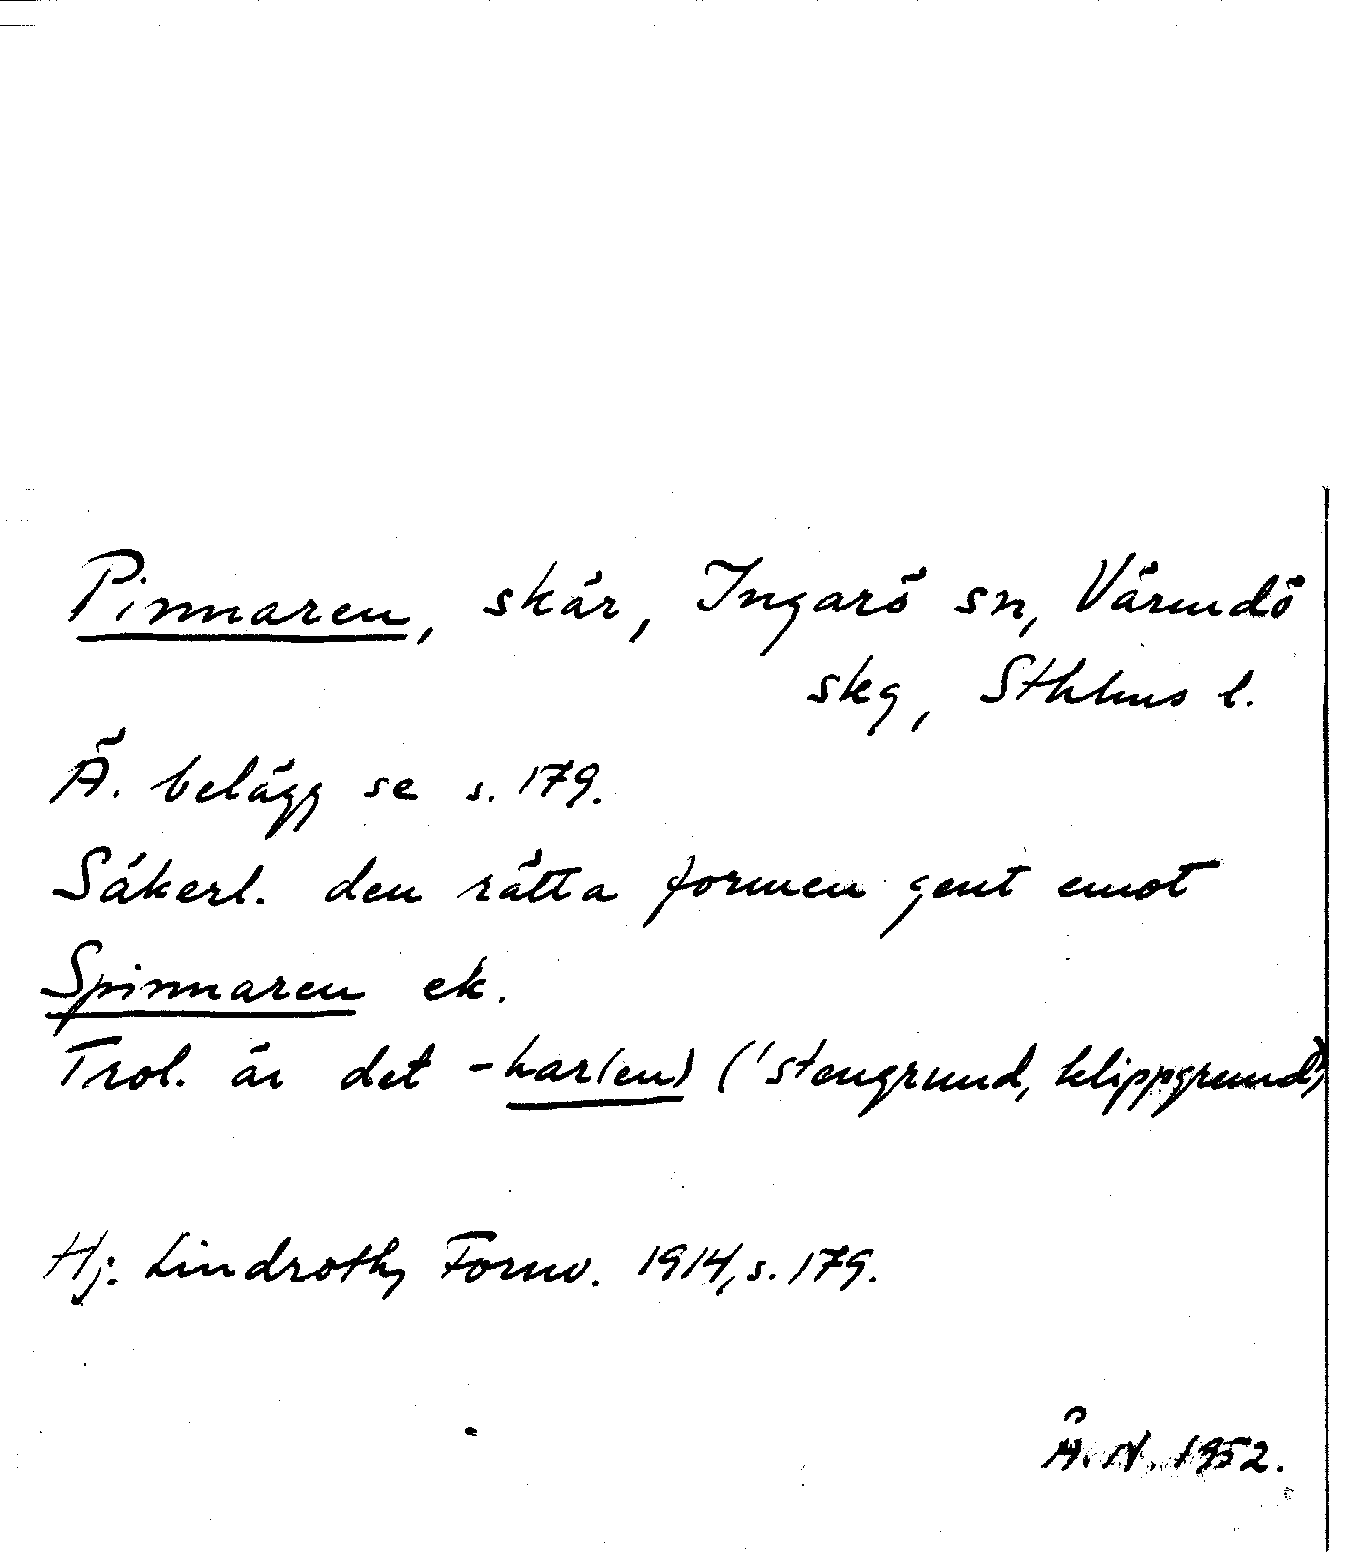 Pinnaren, skär, Ingarö sn, Värmdö
skg, Sthlms l.
Ä. belägg se s. 179.
Säkerl. den rätta formen gent emot
Spinnaren ek.
Trol. är det -har(en) ('stengrund, klippgrund')
Hj. Lindroth, Fornv. 1914, s. 179.
Å.N. 1952.